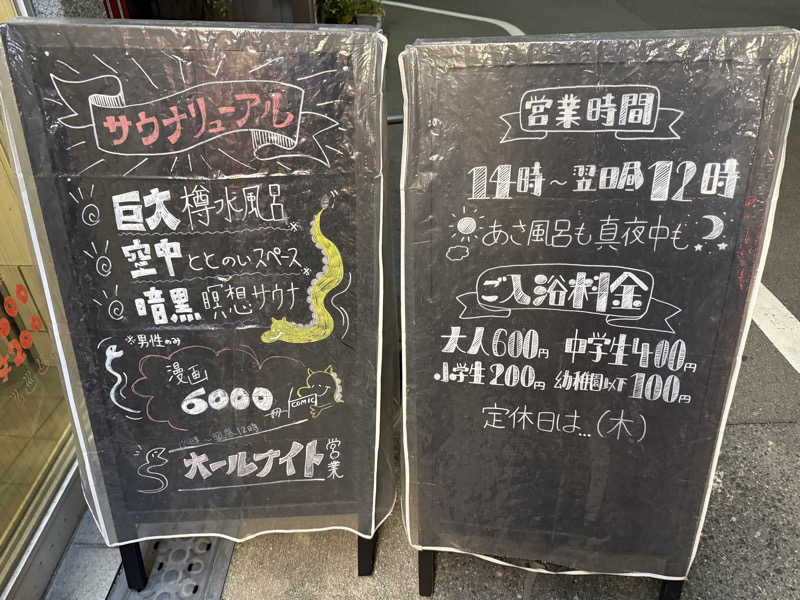 サウナリニューアル
巨大樽水風呂
空中ととのいスペース
暗黒瞑想サウナ
※男性のみ
漫画
6000冊
COMIC
14時～翌昼12時
オールナイト営業
営業時間
14時～翌日昼12時
あさ風呂も真夜中も
ご入浴料金
大人600円 中学生400円
小学生200円 幼稚園以下100円
定休日は...(木)